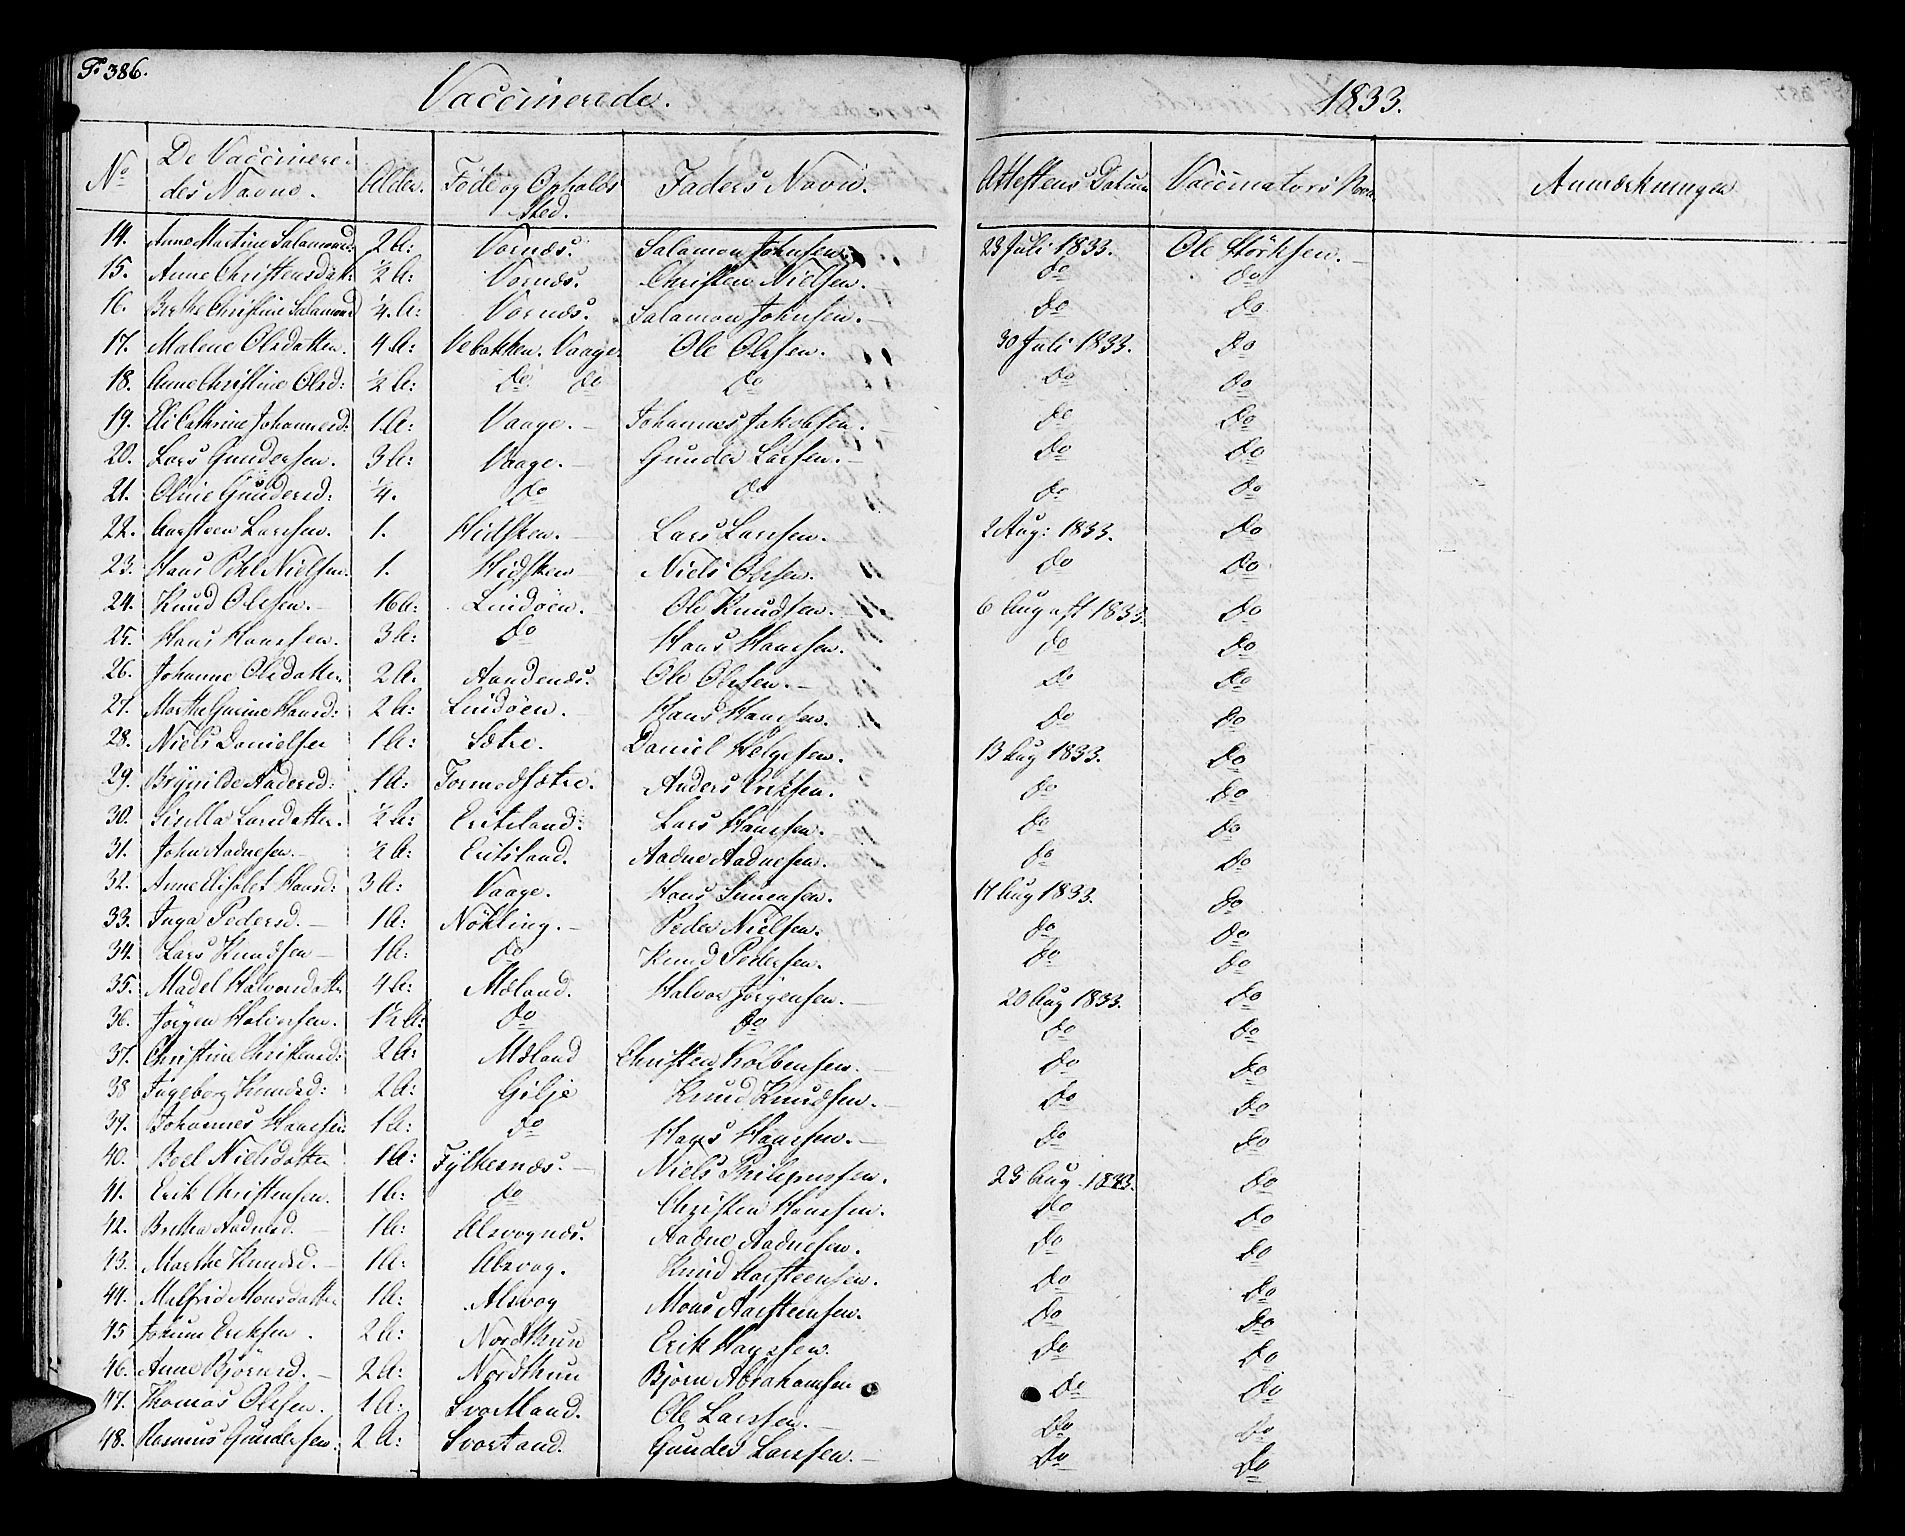 P. 386.
Vaccinerede. 1833.
No De Vaccinere- Alder. Føde og Opholds Faders Navn. Attestens Datum Vaccinators Navn Anmærkninger
des Navne. Sted.
14. Anne Martine Salamonsd: 2 A: Vornæs. Salamon Johnsen. 23 Juli 1833. Ole Størksen.
15. Anne Christensdatt: ½ A: Vornæs. Christen Nielsen. do do
16. Berthe Christine Salamonsd ¼ A: Vornæs. Salamon Johnsen. do do
17. Malene Olsdatter. 4 A: Vebakken. Vaage. Ole Olsen. 30 Juli 1833. do
18. Anne Christine Olsd: ½ A: do do do do do
19. Eli Cathrine Johannesd: 1 A: Vaage. Johannes Jakobsen. do do
20. Lars Gundersen. 3 A: Vaage. Gunder Larsen. do do
21. Oline Gundersd: ¼. do do do do
22. Aarsteen Larssen. 1. Hidsken. Lars Larssen. 2 Aug: 1833. do
23. Hans Pihl Nielsen. 1. Hidsken Niels Olsen. do do
24. Knud Olsen. 16 A: Lindøen. Ole Knudsen. 6 August 1833. do
25. Hans Hanssen. 3 A: do Hans Hanssen. do do
26. Johanne Olsdatter 2 A. Aandenæs. Ole Olssen. do do
27. Marthe Gurine Hansd: 2 A: Lindøen. Hans Hanssen. do do
28. Niels Danielsen 1 A: Sætre. Daniel Helgesen. 13 Aug 1833. do
29. Brynilde Andersd: 1 A: Tormodsætre. Anders Eriksen. do do
30. Sisilla Larsdatter. ½ A: Eritsland: Lars Hanssen. do do
31. John Aadnesen. ½ A: Eritsland. Aadne Aadnesen. do do
32. Anne Elisabet Hansd: 3 A: Vaage. Hans Simensen. 17 Aug 1833. do
33. Inga Pedersd. 1 A: Nøkling. Peder Nielsen. do do
34. Lars Knudsen 1 A: do Knud Pedersen. do do
35. Madel Halvorsdatter 4 A: Mæland. Halvor Jørgensen. 20 Aug 1833. do
36. Jørgen Halvorsen. 1½ A: do do do do
37. Christine Christensd: 2 A: Mæland Christen Kolbensen. do do
38 Ingeborg Knudsd: 2 A: Gilje Knud Knudsen. do do
39. Johannes Hanssen 1 A: do Hans Hanssen. do do
40. Boel Nielsdatter 1 A: Fylkesnæs. Niels Philipussen. 23 Aug. 1833. do
41. Erik Christensen. 1 A: do Christen Hanssen. do do
42. Brithe Aadnesd. 1 A: Alsvognæs. Aadne Aadnesen. do do
43. Marthe Knudsd. 1 A: Alsvog. Knud Aarsteensen. do do
44. Malfrid Monsdatter 1 A: Alsvog Mons Aarsteinsen. do do
45 Johanne Eriksen. 2 A: Nordthun Erik Hanssen. do do
46. Anne Bjørnsd. 2 A: Nordthun Bjørn Abrahamsen do do
47. Thomas Olsen. 1 A: Svortland. Ole Larssen. do do
48. Rasmus Gundersen. 2 A: Svortland. Gunder Larssen. do do